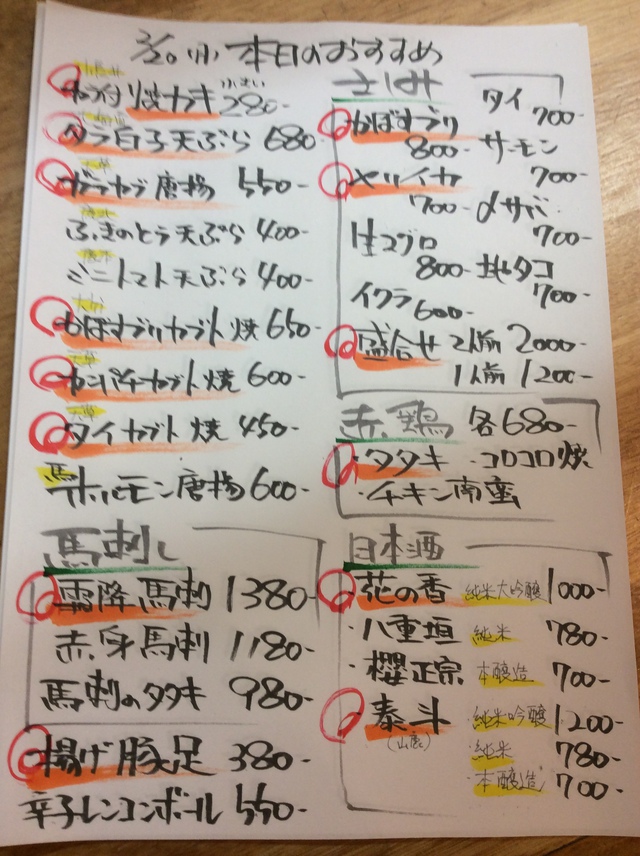 2/20(月)本日のおすすめ
カラ付焼カキ 小さい 280-
タラ白子天ぷら 680-
天草
ガラカブ唐揚 550-
ふきのとう天ぷら 400-
ミニトマト天ぷら 400-
大分
かぼすブリカブト焼 650-
天草
カンパチカブト焼 600-
天草
タイカブト焼 450-
馬ホルモン唐揚 600-
馬刺し
霜降馬刺 1380-
赤身馬刺 1180-
馬刺のタタキ 980-
揚げ豚足 380-
辛子レンコンボール 550-
さしみ
かぼすブリ 800-
ヤリイカ 700-
生マグロ 800-
イクラ 600-
タイ 700-
サーモン 700-
〆サバ 700-
地タコ 700-
盛合せ 2人前 2000-
1人前 1200-
赤鶏 各680-
・タタキ ・コロコロ焼
・チキン南蛮
日本酒
花の香 純米大吟醸 1000-
・八重垣 純米 780-
・櫻正宗 本醸造 700-
泰斗 純米吟醸 1200-
(山鹿) ・純米 780-
・本醸造 700-